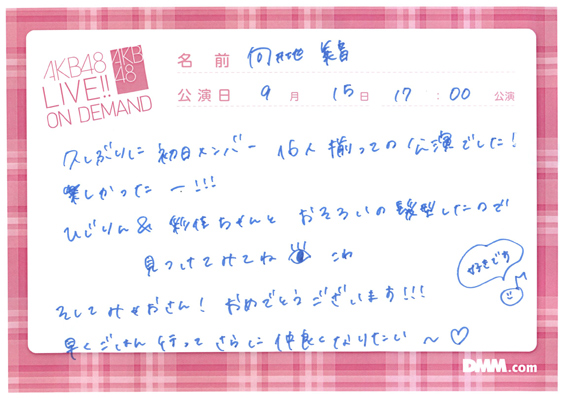 AKB48
LIVE!!
ON DEMAND
AKB48
名前 向井地 美音
公演日 9月 15日 17:00 公演
久しぶりに 初日メンバー 16人 揃っての公演でした!
楽しかったー!!!
ひじりん& 彩佳ちゃんと おそろいの髪型したので
見つけてみてね こわ
好きです
そしてみおさん! おめでとうございます!!!
早くごはん 行って さらに 仲良くなりたい 〜♡
DMM.com